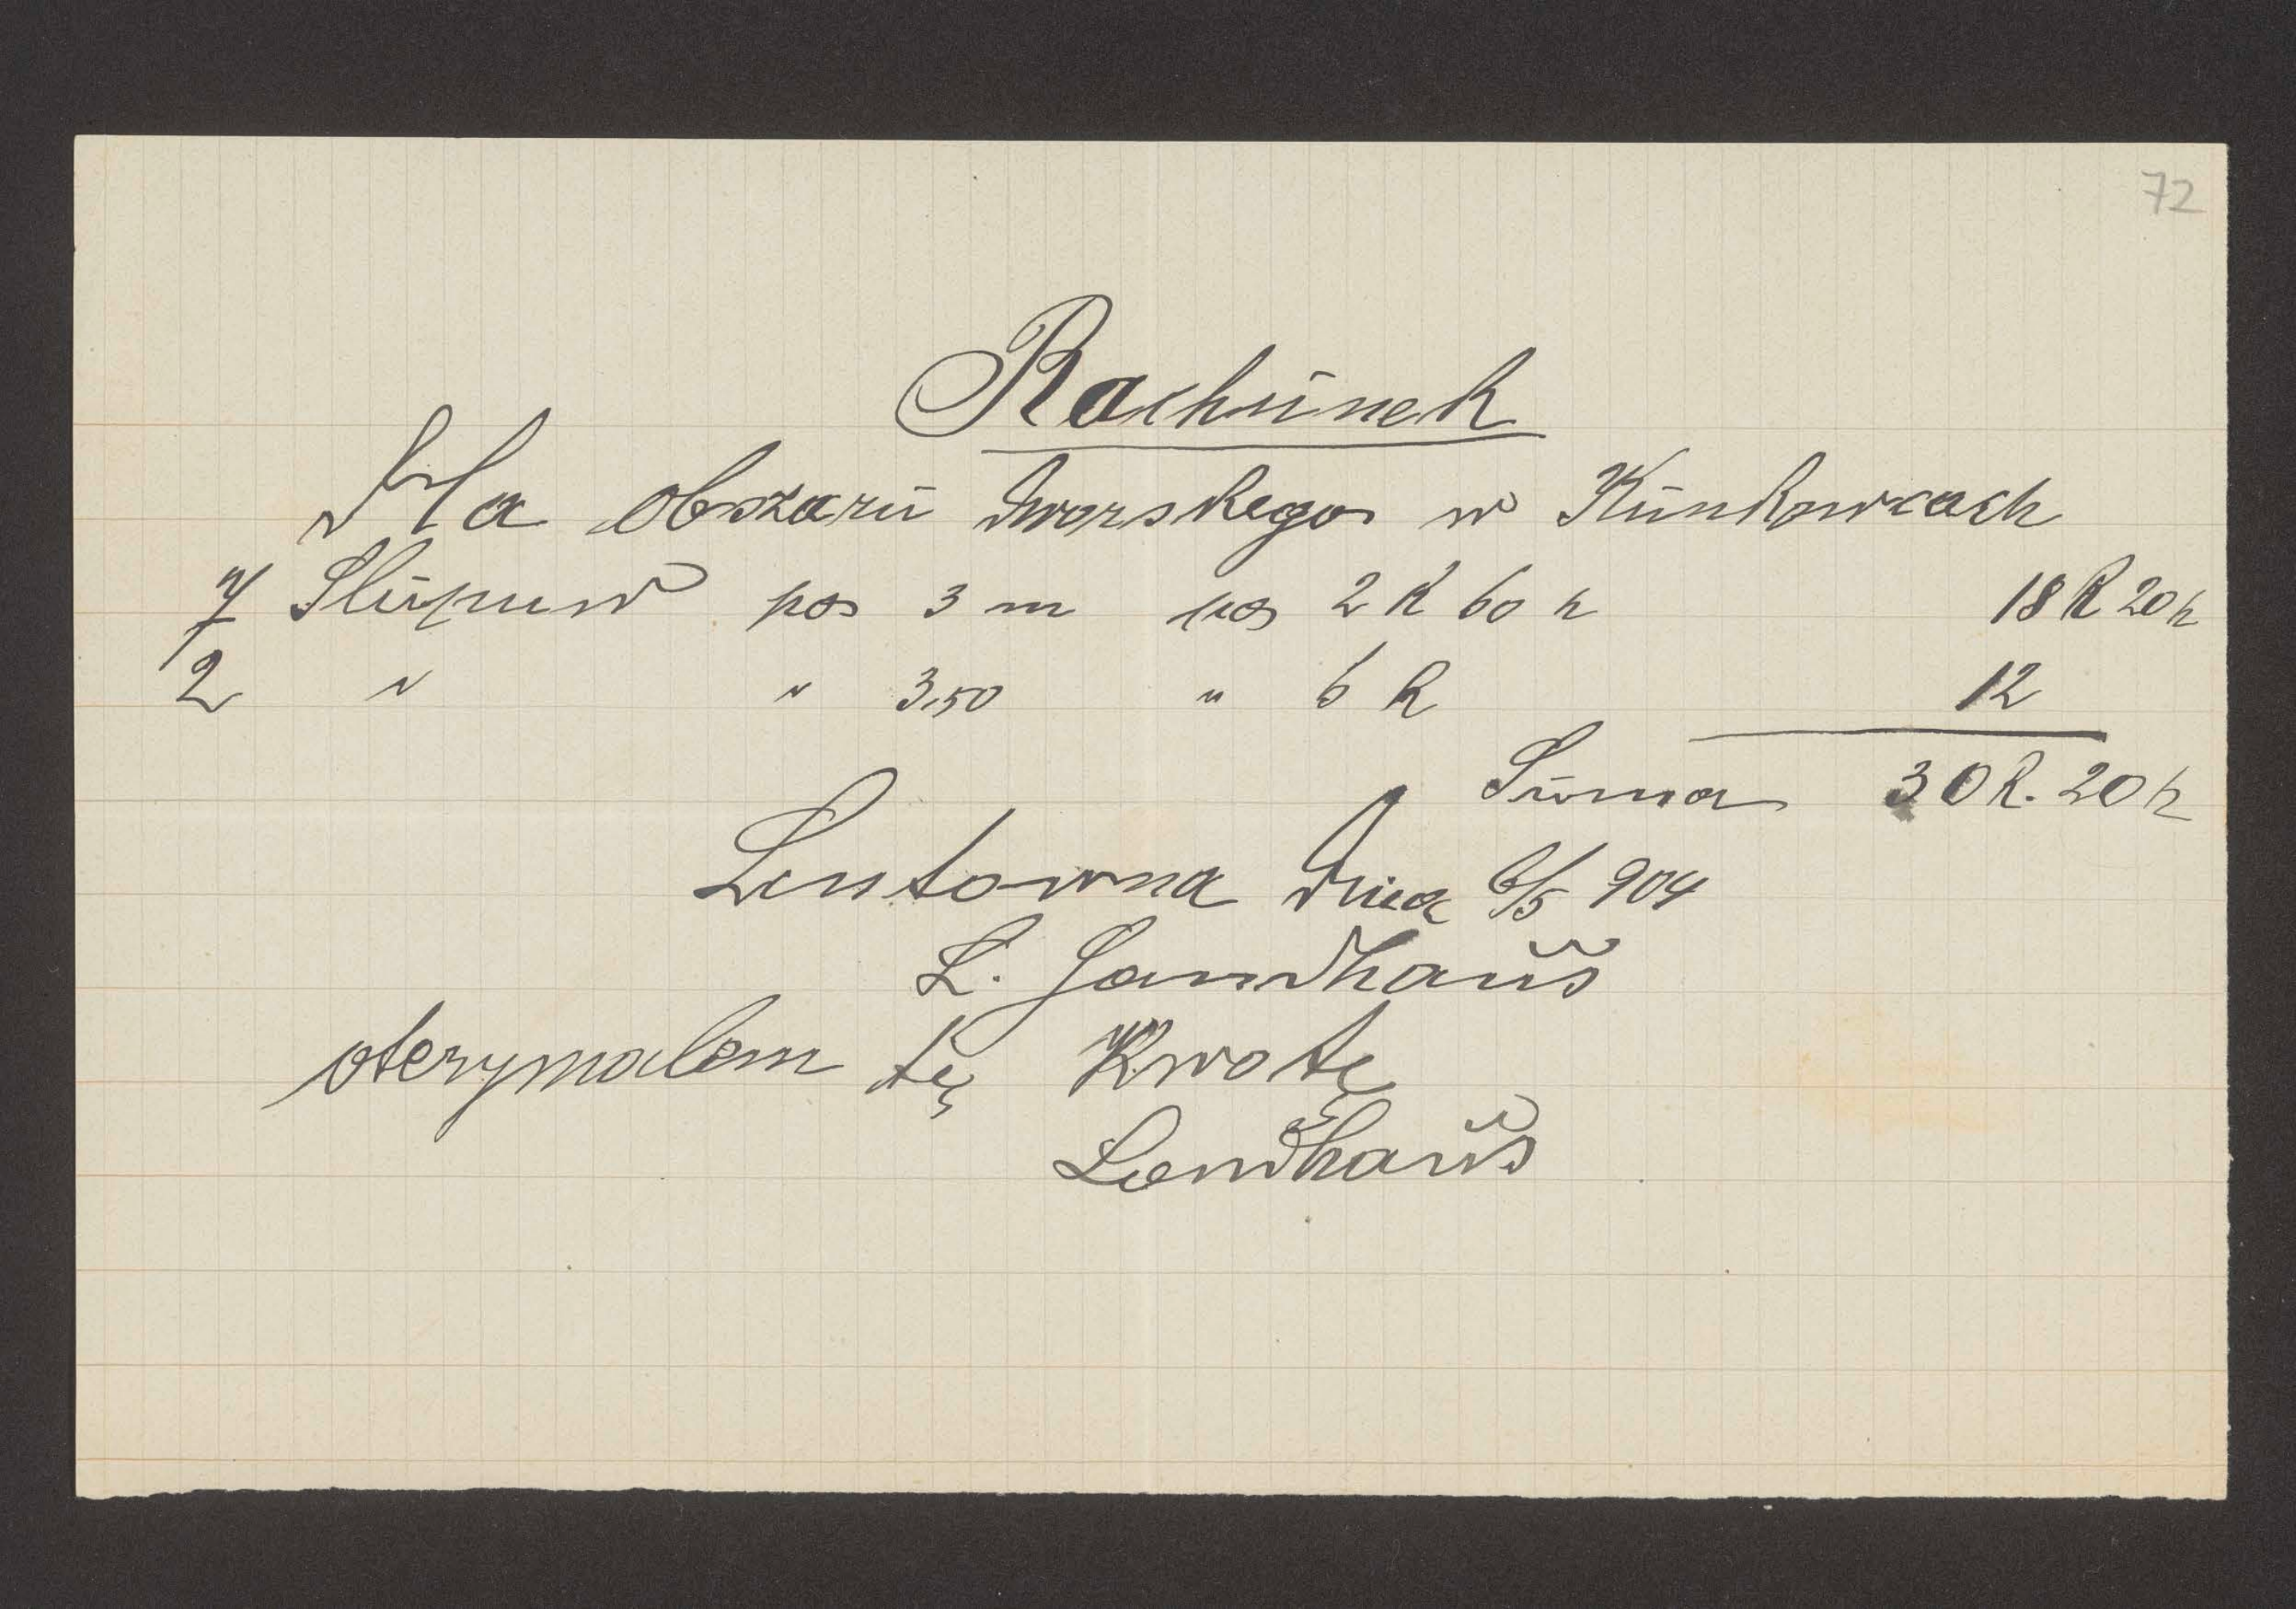 72
Rachunek
Dla obszaru dworskego w Kunkowcach
7 Slupuw po 3 m po 2 K 60 h 18 K 20 h
2 " " 3,50 " 6 K 12
Suma 30 K. 20 h
Lentowna dnia 6/5 904
L. Landhaus
oterymalem tę Kwotę
Landhaus